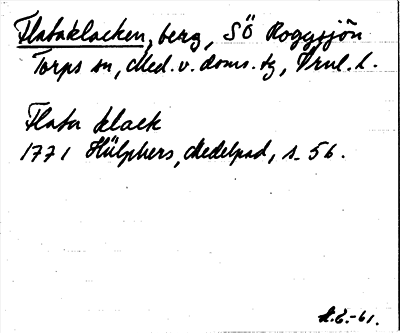 Flataklacken, berg, SÖ Roggsjön
Torps sn, Med. v. doms. tg, Vnl. l.
Flata klack
1771 Hülphers, Medelpad, s. 56.
-61.